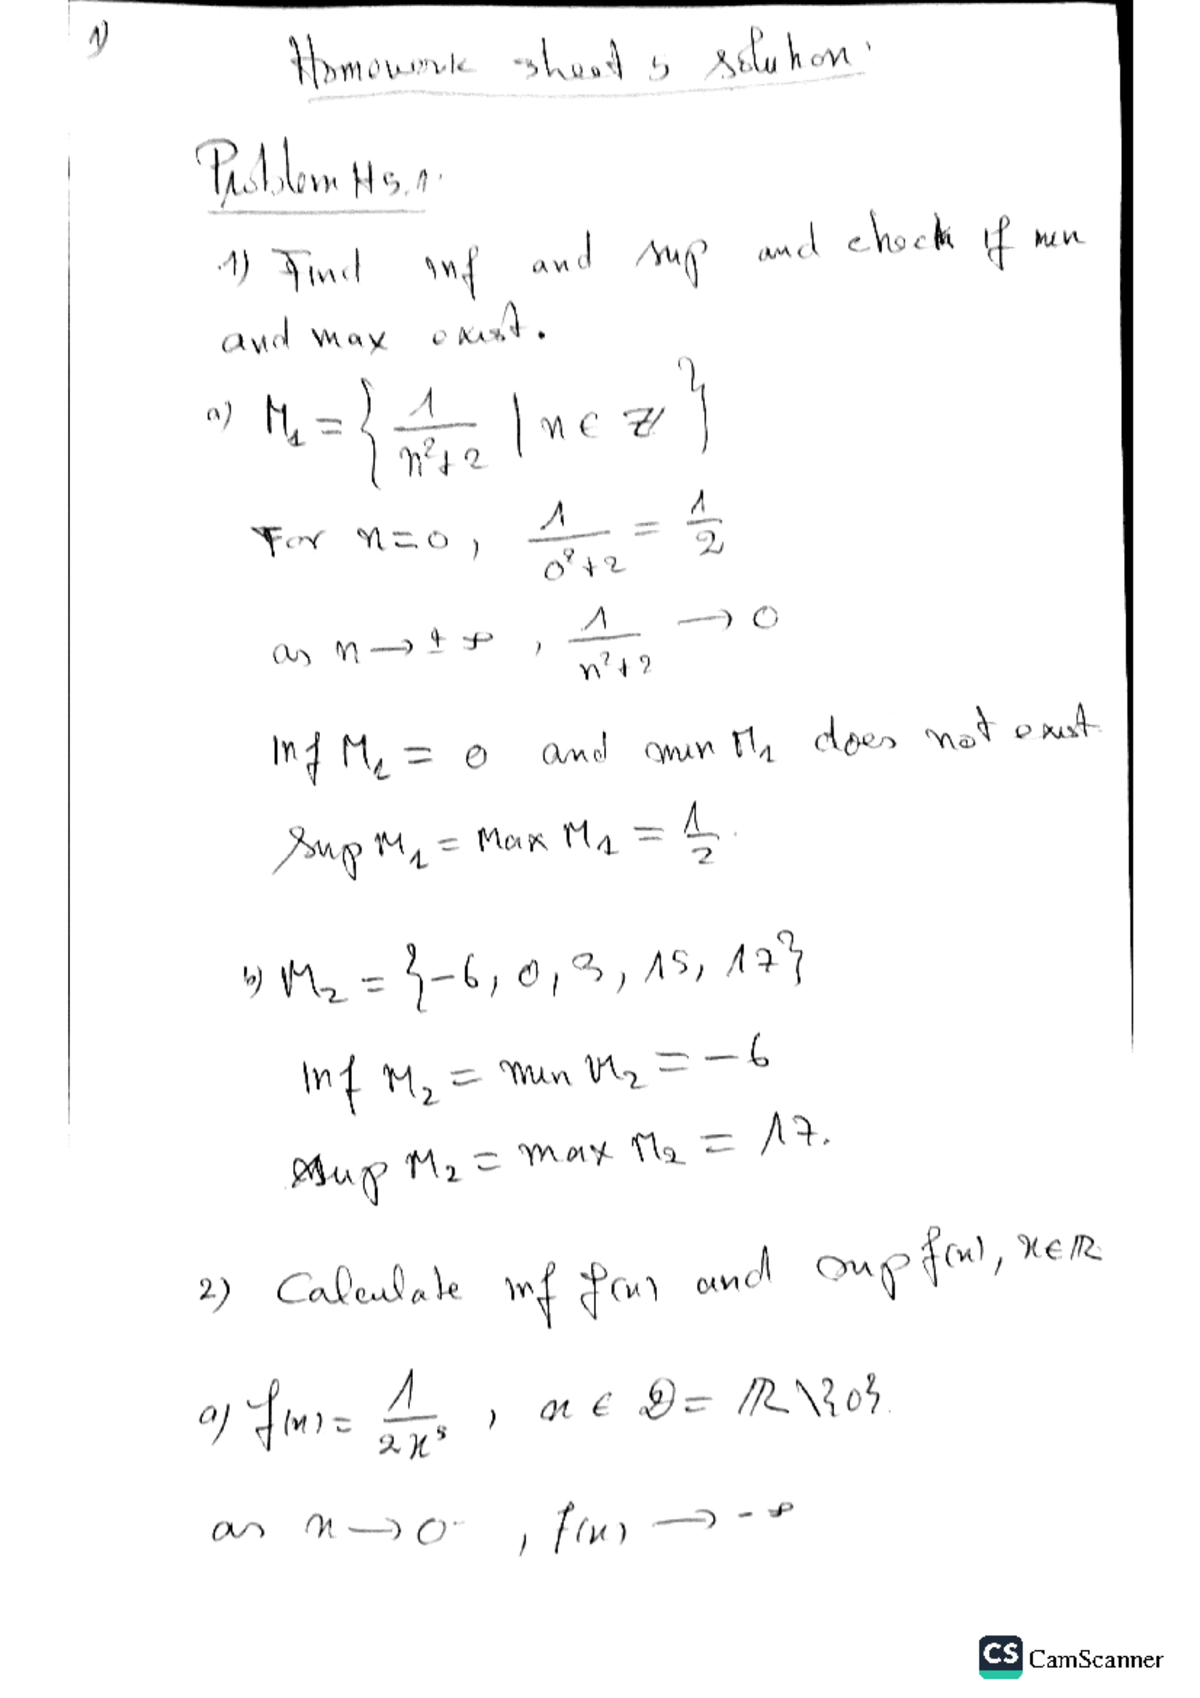 1)
Homework sheet 5 solution.
Problem H5.1.
1) Find inf and sup and check if min
and max exist.
a) M₁ = { 1/(n²+2) | n ∈ ℤ }
For n=0, 1/(0²+2) = 1/2
as n → ±∞, 1/(n²+2) → 0
Inf M₁ = 0 and min M₁ does not exist.
Sup M₁ = Max M₁ = 1/2.
b) M₂ = {-6, 0, 3, 15, 17}
Inf M₂ = min M₂ = -6
Sup M₂ = max M₂ = 17.
2) Calculate inf f(x) and sup f(x), x∈ℝ
a) f(x) = 1/(2x⁵), x ∈ D = ℝ\{0}.
as x → 0⁻, f(x) → -∞
CS CamScanner